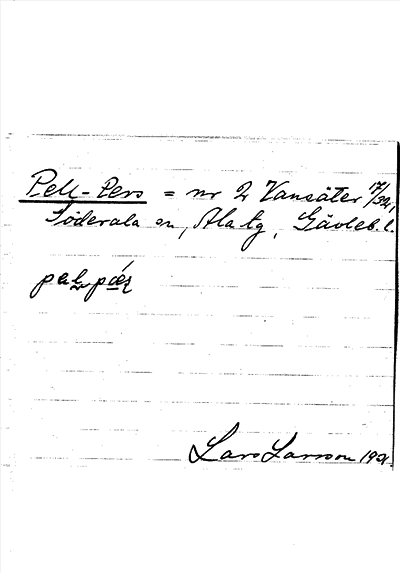 Pell-Pers = nr 2 Vansäter 17/32,
Söderala sn, Ala tg, Gävleb. l.
Lars Larsson